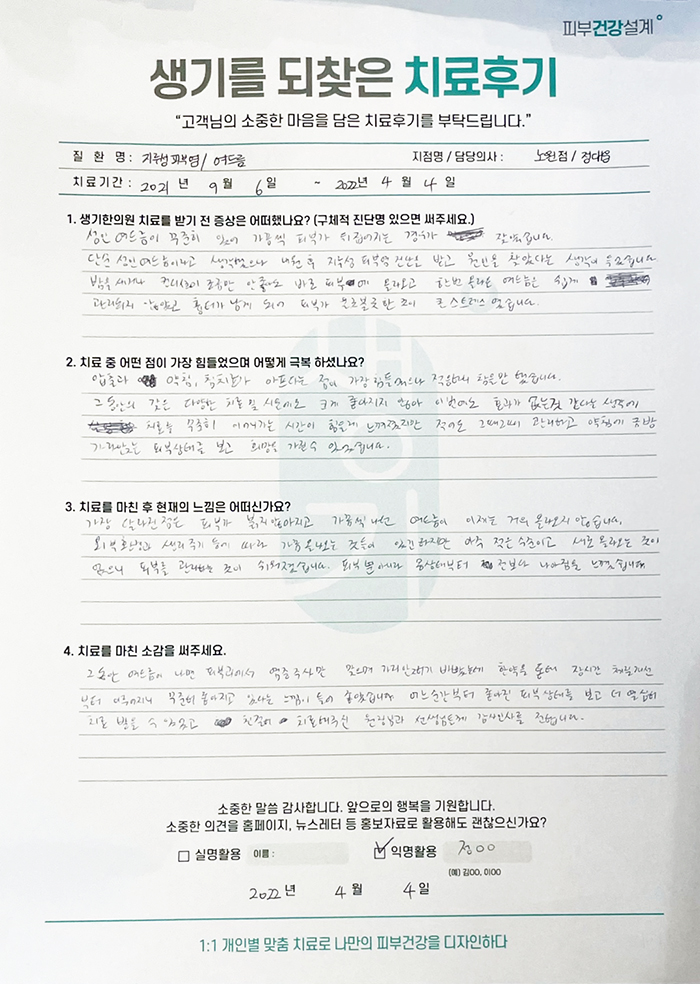 피부건강설계
생기를 되찾은 치료후기
"고객님의 소중한 마음을 담은 치료후기를 부탁드립니다."
질 환 명 : 지루성피부염 / 여드름 지점명 / 담당의사 : 노원점 / 정대웅
치료기간 : 2021 년 9 월 6 일 ~ 2022년 4 월 4 일
1. 생기한의원 치료를 받기 전 증상은 어떠했나요? (구체적 진단명 있으면 써주세요.)
성인 여드름이 꾸준히 있어 가끔씩 피부가 뒤집어지는 경우가 잦았습니다.
단순 성인여드름이라고 생각했으나 내원 후 지루성 피부염 진단을 받고 원인을 찾았다는 생각이 들었습니다.
밤을 새거나 컨디션이 조금만 안좋아도 바로 피부에 올라오고 한번 올라온 여드름은 쉽게
관리되지 않았고 흉터가 남게 되어 피부가 울긋불긋한 것이 큰 스트레스였습니다.
2. 치료 중 어떤 점이 가장 힘들었으며 어떻게 극복 하셨나요?
압출과 약침, 침치료가 아프다는 점이 가장 힘들었으나 적응하니 참을만 했습니다.
그동안의 갖은 다양한 치료 및 시도에도 크게 좋아지지 않아 이번에도 효과가 없는것 같다는 생각에
치료를 꾸준히 이어가는 시간이 힘들게 느껴졌지만 적어도 그때그때 관리하고 약침에 금방
가라앉는 피부상태를 보고 희망을 가질수 있었습니다.
3. 치료를 마친 후 현재의 느낌은 어떠신가요?
가장 달라진점은 피부가 붉지않아지고 가끔씩 나던 여드름이 이제는 거의 올라오지 않습니다.
외부환경과 생리주기 등에 따라 가끔 올라오는 것들이 있긴하지만 아주 적은 수준이고 새로 올라오는 것이
없으니 피부를 관리하는 것이 쉬워졌습니다. 피부뿐아니라 몸상태부터 전보다 나아짐을 느꼈습니다.
4. 치료를 마친 소감을 써주세요.
그동안 여드름이 나면 피부과에서 염증주사만 맞으며 가라앉히기 바빴는데 한약을 통해 장시간 체질개선
부터 이루어지니 꾸준히 좋아지고 있다는 느낌이 들어 좋았습니다. 어느순간부터 좋아진 피부상태를 보고 더 열심히
치료 받을 수 있었고 친절히 치료해주신 원장님과 선생님들께 감사인사를 전합니다.
소중한 말씀 감사합니다. 앞으로의 행복을 기원합니다.
소중한 의견을 홈페이지, 뉴스레터 등 홍보자료로 활용해도 괜찮으신가요?
□ 실명활용 이름 : ☑ 익명활용 전OO
(예) 김OO, 이OO
2022 년 4 월 4 일
1:1 개인별 맞춤 치료로 나만의 피부건강을 디자인하다